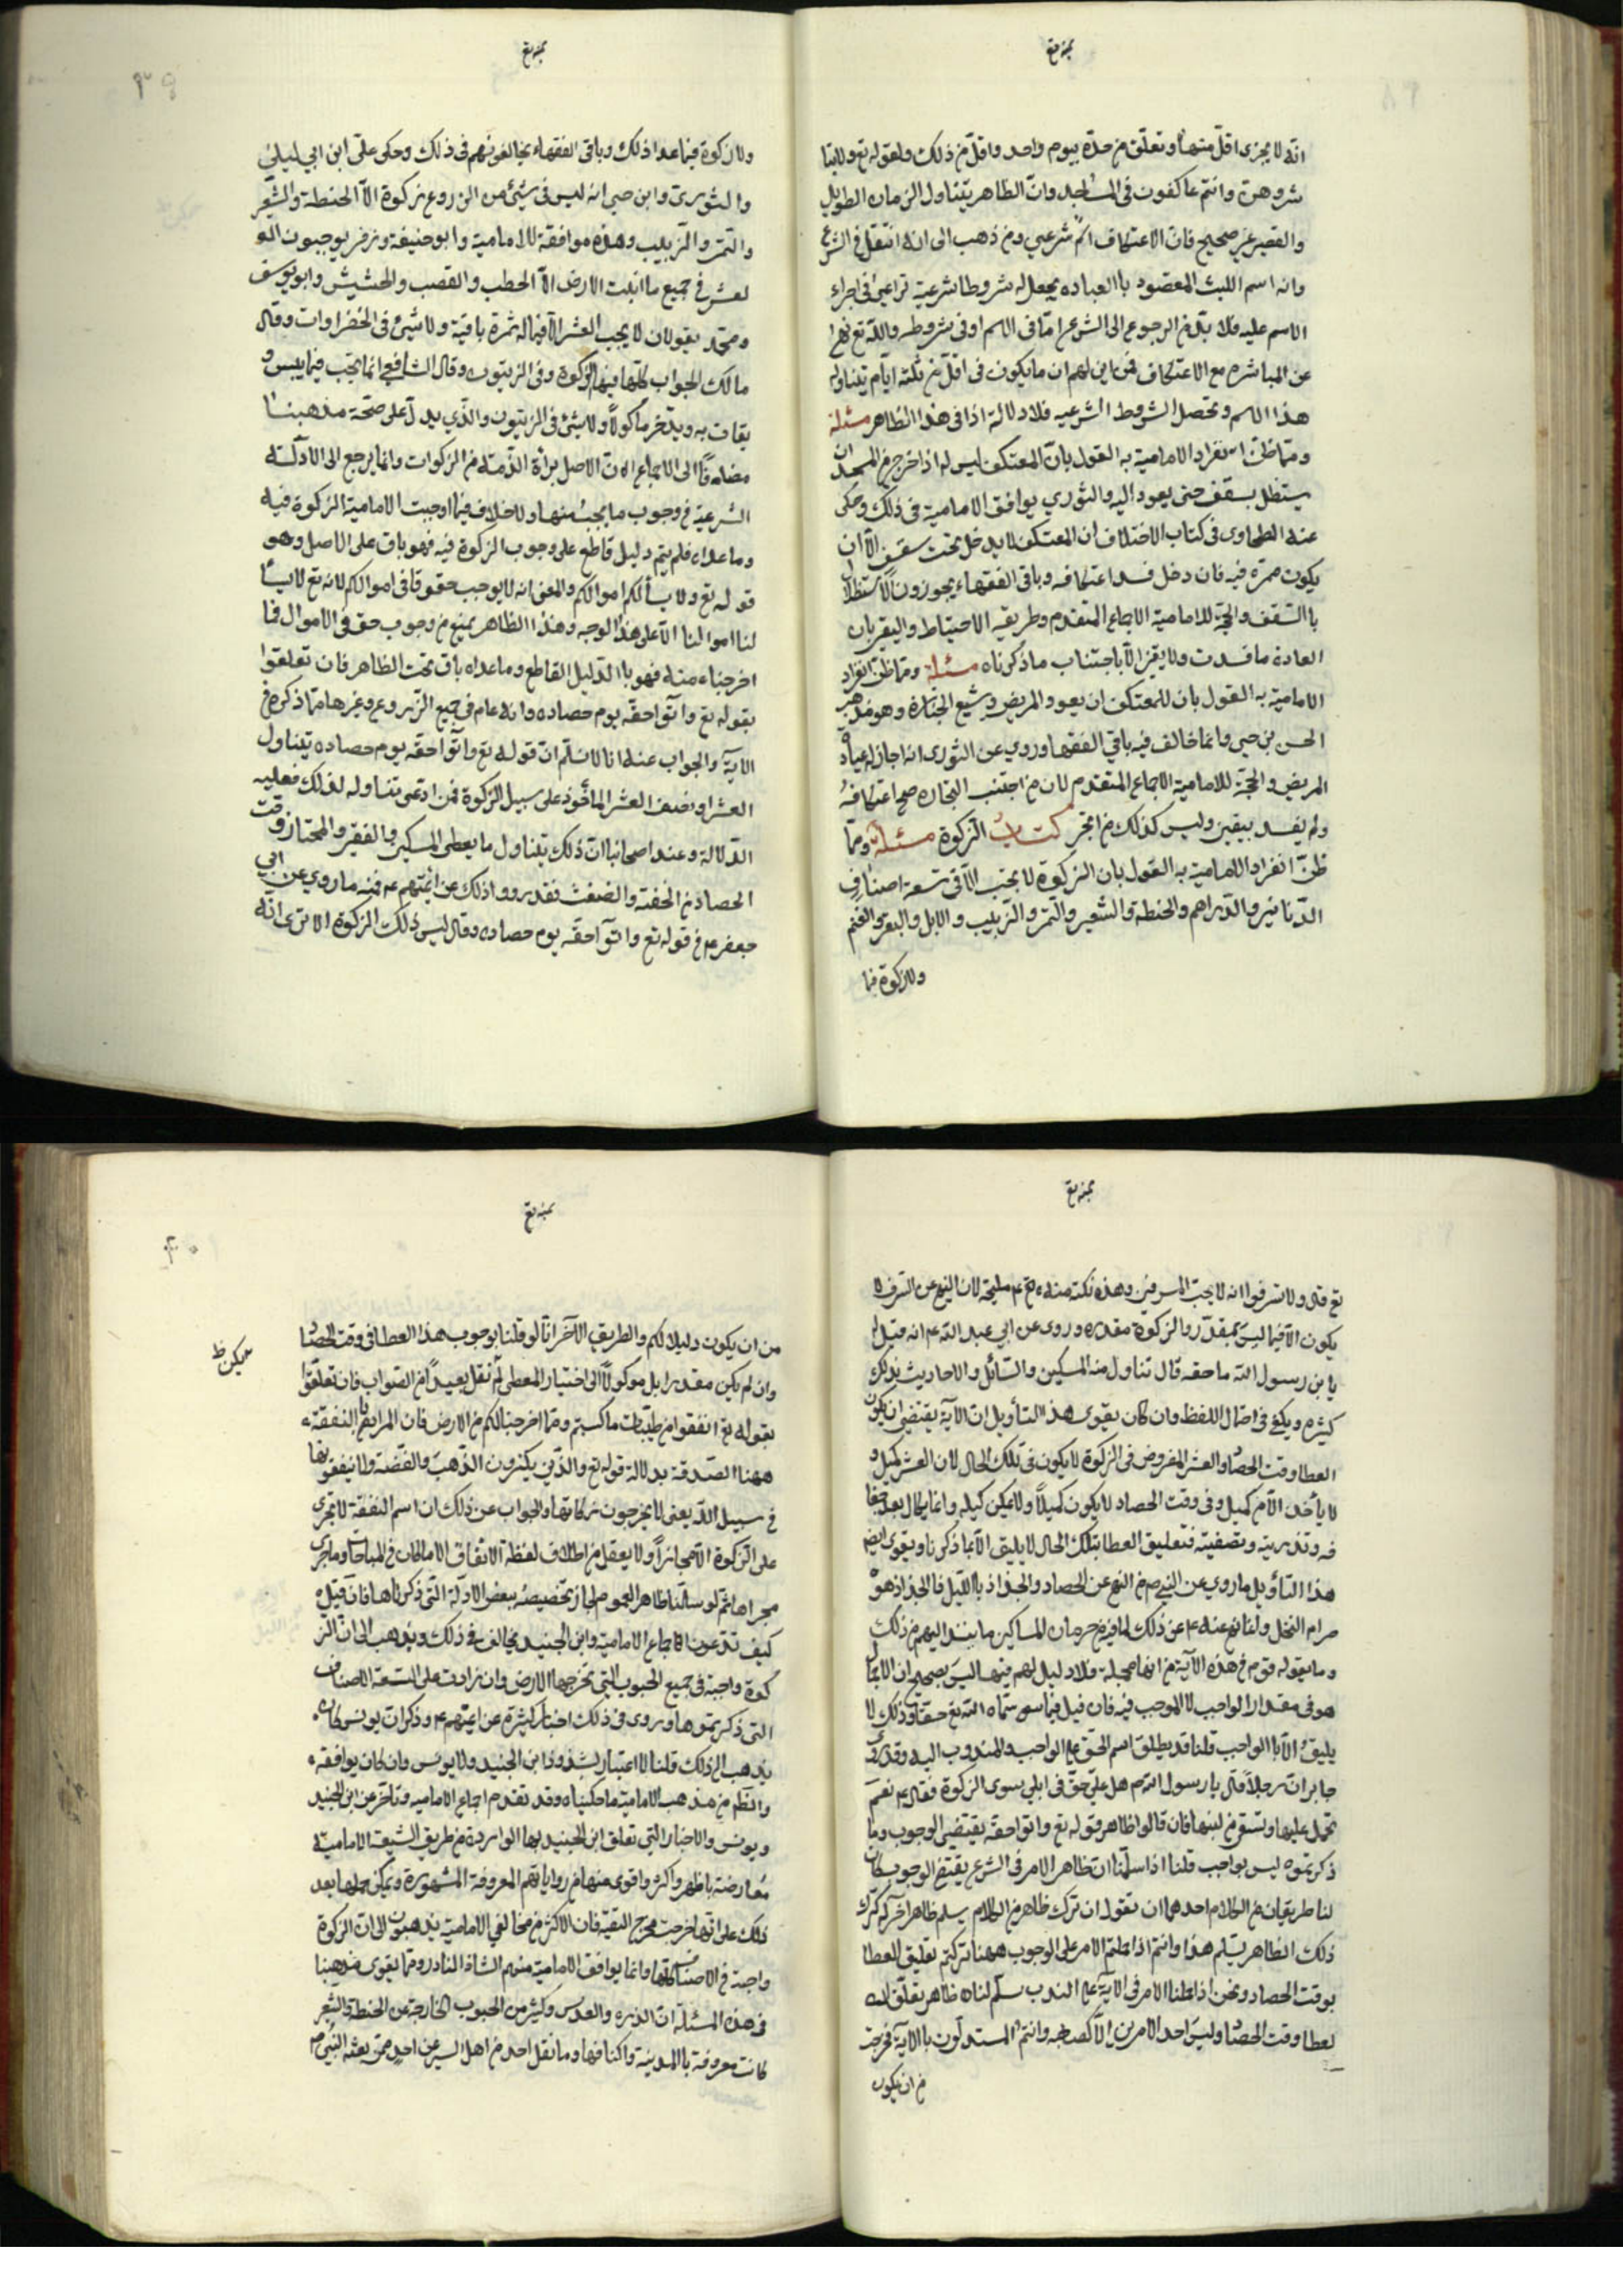 انه لا يجزى اقل منها وتعلق من حده بيوم واحد واقل من ذلك ولقوله تع ولا تبا
شروهن وانتم عاكفون فى المساجد وان الظاهر يتناول الزمان الطويل
والقصير غير صحيح فان الاعتكاف اسم شرعي ومن ذهب الى انه انتقل فى الشرع
وانه اسم اللبث المقصود با العباده يجعل له شروطا شرعية تراعى فى اجراء
الاسم عليه فلا بد من الرجوع الى الشرع اما فى الاسم او فى شروطه والله تع نها
عن المباشره مع الاعتكاف فمن اين لهم ان ما يكون فى اقل من ثلثه ايام يتناوله
هذا الاسم وتحصل الشروط الشرعيه فلا دلالة اذا فى هذا الظاهر مسئلة
ومما ظن انفراد الامامية به القول بان المعتكف ليس له اذا خرج من المسجد ان
يستظل بسقف حتى يعود اليه والثوري يوافق الامامية فى ذلك وحكى
عنه الطحاوى فى كتاب الاختلاف ان المعتكف لا يدخل تحت سقف الا ان
يكون ممره فيه فان دخل فسد اعتكافه وباقى الفقهاء يجوزون الاستظلال
با السقف والحجة للامامية الاجماع المتقدم وطريقه الاحتياط واليقين بان
العبادة ما فسدت ولا يقين الا با جتناب ما ذكرناه مسئلة ومما ظن انفراد
الامامية به القول بان للمعتكف ان يعود المريض ويشيع الجنازة وهو مذهب
الحسن بن حي وانما خالف فيه باقي الفقها وروي عن الثورى انه اجاز له عيادة
المريض والحجة للامامية الاجماع المتقدم لان من اجتنب التجاره صح اعتكافه
ولم يفسد بيقين وليس كذلك من اتجر كتاب الزكوة مسئلة ومما
ظن انفراد الامامية به القول بان الزكوة لا تجب الا فى تسعة اصناف
الدنانير والدراهم والحنطه والشعير والتمر والزبيب والابل والبقر والغنم
ولا زكوة فيما
ولا زكوة فيما عدا ذلك وباقى الفقهاء يخالفونهم فى ذلك وحكى على ابن ابي ليلى
والثورى وابن حي انه ليس فى شيئ من الزروع زكوة الا الحنطة والشعير
والتمر والزبيب وهذه موافقة للامامية وابو حنيفة وزفر يوجبون ال
لعشر فى جميع ما انبتت الارض الا الحطب والقصب والحشيش وابو يوسف
ومحمد يقولان لا يجب العشر الا فيما له ثمرة باقية ولا شيئ فى الخضراوات وقال
مالك الحبوب كلها فيها الزكوة وفى الزيتون وقال الشافعي انما تجب فيما ييبس و
يقات به ويدخر ماكولا ولا شيئ فى الزيتون والذي يدل على صحة مذهبنا
مضافا الى الاجماع ان الاصل براة الذمة من الزكوات وانما يرجع الى الادلة
الشرعية فى وجوب ما يجب منها ولا خلاف فيما اوجبت الامامية الزكوة فيه
وما عداه فلم يتم دليل قاطع على وجوب الزكوة فيه فهو باق على الاصل وهو
قوله تع ولا يسألكم اموالكم والمعنى انه لا يوجب حقوقا فى اموالكم لانه تع لا يسا
لنا اموالنا الا على هذا الوجه وهذا الظاهر يمنع من وجوب حق فى الاموال فما
اخرجناه منه فهو با الدليل القاطع وما عداه باق تحت الظاهر فان تعلقوا
بقوله تع واتوا حقه يوم حصاده وانه عام فى جميع الزروع وغيرها مما ذكره فى
الاية والجواب عنه انا لا نسلم ان قوله تع واتوا حقه يوم حصاده يتناول
العشر او نصف العشر المأخوذ على سبيل الزكوة فمن ادعى تناوله لذلك فعليه
الدلالة وعند اصحابنا ان ذلك يتناول ما يعطى المسكين والفقير والمجتاز وقت
الحصاد من الحفنة والضغث فقد رووا ذلك عن ائمتهم ع فمنه ما روي عن ابي
جعفر ع فى قوله تع واتوا حقه يوم حصاده وقال ليس ذلك الزكوة الا ترى انه
تع قال ولا تسرفوا انه لا يحب المسرفين وهذه نكتة منه ع مليحة لان النهي عن السرف لا
يكون الا فيما ليس بمقدر والزكوة مقدره وروى عن ابي عبد الله ع انه قيل له
يا بن رسول الله ما حقه قال تناول منه المسكين والسائل والاحاديث بذلك
كثيره ويكفى فى احتمال اللفظ وان كان يقوى هذا التأويل ان الآية يقتضى ان يكون
العطا وقت الحصاد والعشر المفروض فى الزكوة لا يكون فى تلك الحال لان العشر مكيل و
لا يأخذ الا من كميل وفى وقت الحصاد لا يكون كميلا ولا يمكن كيله وانما يكال بعد جفا
فه وتذريته وتصفيته فتعليق العطا بتلك الحال لا يليق الا بما ذكرنا ويقوى ايضا
هذا التأويل ما روي عن النبي ص من النهى عن الحصاد والجذاذ با الليل فا الجذاذ هو
صرام النخل وانما نهى عنه ع عن ذلك لما فيه من حرمان المساكين ما ينبذ اليهم من ذلك
وما يقوله قوم فى هذه الآية من انها مجملة فلا دليل لهم فيها ليس بصحيح ان الاجمال
هو فى مقدار الواجب لا الموجب فيه فان قيل فيما سمى سماه الله تع حقا وذلك لا
يليق الا با الواجب قلنا قد يطلق اسم الحق على الواجب والمندوب اليه وقد روى
جابر ان رجلا قال يا رسول الله ص هل على حق فى ابلي سوى الزكوة فقال ع نعم
تحمل عليها وتسقى من لبنها فان قالوا ظاهر قوله تع واتوا حقه يقتضى الوجوب وما
ذكرتموه ليس بواجب قلنا اذا سلمنا ان ظاهر الامر فى الشرع يقتضى الوجوب كان
لنا طريقان من الكلام احدهما ان نقول ان ترك ظاهر من الكلام يسلم ظاهر اخر له كترك
ذلك الظاهر يسلم هذا وانتم اذا حملتم الامر على الوجوب ههنا تركتم تعليق العطا
بوقت الحصاد ونحن اذا حملنا الامر فى الآية على الندب سلم لنا ظاهر تعلق ال
لعطا وقت الحصاد وليس احد الامرين الا كصاحبه وانتم المستدلون با الآية فخرجت
من ان يكون
من ان يكون دليلا لكم والطريق الآخر انا لو قلنا بوجوب هذا العطا فى وقت الحصاد
وان لم يكن مقدرا بل موكولا الى اختيار المعطى لم نقل بعيدا من الصواب فان تعلقوا
بقوله تع انفقوا من طيبات ما كسبتم ومما اخرجنا لكم من الارض فان المراد با النفقة
ههنا الصدقة بدلالة قوله تع والذين يكنزون الذهب والفضة ولا ينفقونها
فى سبيل الله يعنى لا يخرجون زكاتها والجواب عن ذلك ان اسم النفقة لا تجرى
على الزكوة الا مجازا ولا يعقل من اطلاق لفظة الانفاق الا ما كان فى المباحات وما جرى
مجراها ثم لو سلمنا ظاهر العموم لجاز تخصيصه ببعض الادلة التى ذكرناها فان قيل
كيف تدعون اجماع الامامية وابن الجنيد يخالف فى ذلك ويذهب الى ان الز
كوة واجبة فى جميع الحبوب التي تخرجها الارض وان زادت على التسعة الاصناف
التى ذكرتموها وروى فى ذلك اخبارا كثيرة عن ائمتهم ع وذكر ان يونس كان
يذهب الى ذلك قلنا لا اعتبار بشذوذ ابن الجنيد ولا يونس وان كان يوافقه
والظاهر من مذهب الامامية ما حكيناه وقد تقدم اجماع الاماميه وتاخر عن ابن الجنيد
ويونس والاخبار التي تعلق ابن الجنيد بها الواردة من طريق الشيعة الامامية
معارضة باظهر واكثر واقوى منها من رواياتهم المعروفة المشهورة ويمكن حملها بعد
ذلك على انها خرجت مخرج التقية فان الاكثر من مخالفي الامامية يذهبون الى ان الزكوة
واجبة فى الاصناف كلها وانما يوافق الامامية منهم الشاذ النادر ومما يقوى مذهبنا
فى هذه المسئلة ان الذره والعدس وكثير من الحبوب الخارجة عن الحنطة والشعير
كانت معروفة با المدينة واكنافها وما نقل احد من اهل السير عن احد ممن بعثه النبي ص